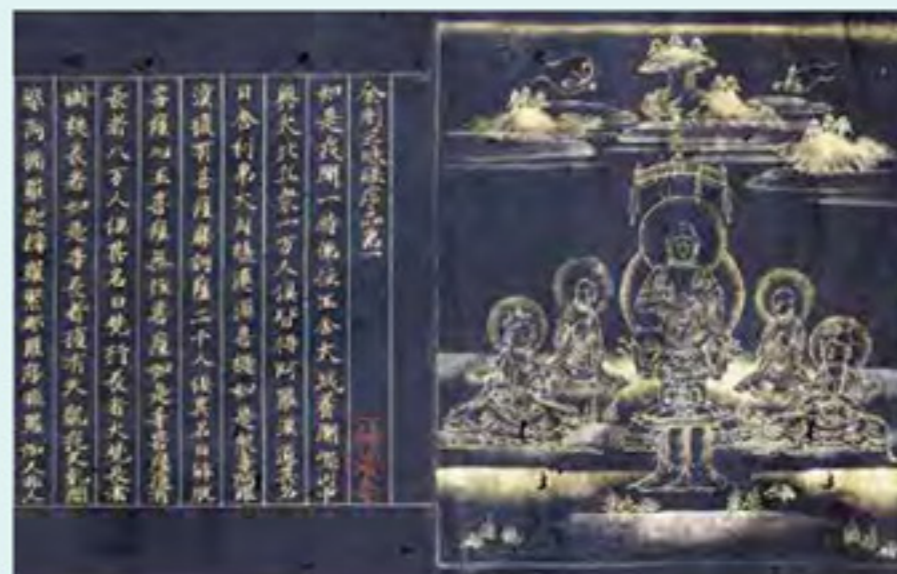 金剛三昧経序品第一
如是我聞一時佛在王舍大城耆闍崛山中
與大比丘衆一万人俱皆得阿羅漢道其名
曰舍利弗大目揵連須菩提如是衆等阿羅
漢復有菩薩摩訶薩二千人俱其名曰解脱
菩薩心王菩薩無住菩薩如是等菩薩復有
長者八万人俱其名曰梵行長者大梵長者
樹提長者如是等長者復有天龍夜叉乾闥
婆阿脩羅迦樓羅緊那羅摩睺羅伽人非人